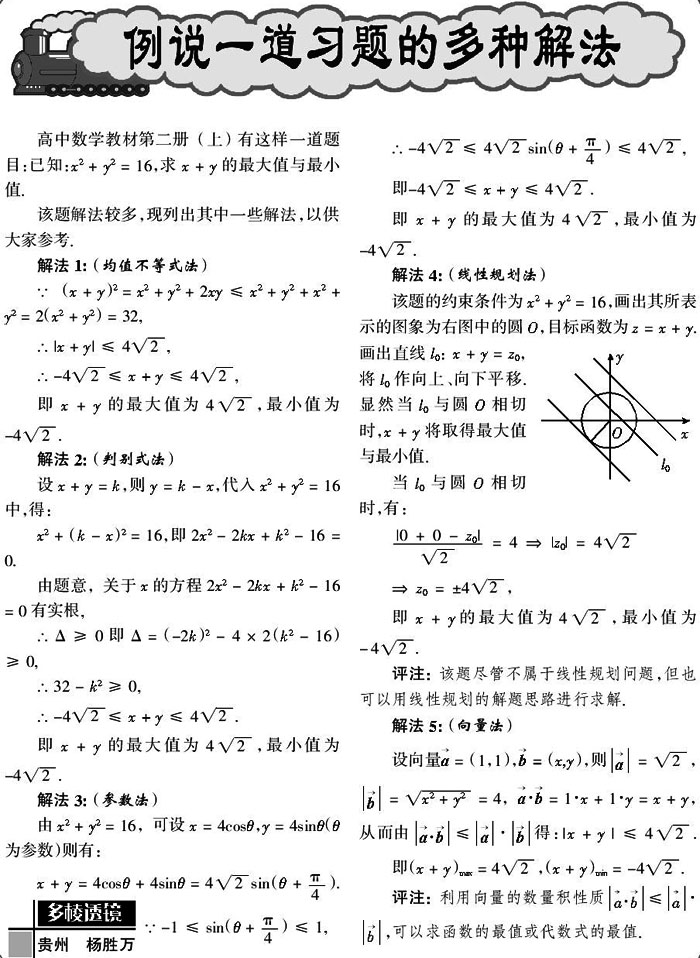 例说一道习题的多种解法
高中数学教材第二册（上）有这样一道题
目:已知:x² + y² = 16,求 x + y 的最大值与最小
值.
该题解法较多,现列出其中一些解法,以供
大家参考.
解法 1:（均值不等式法）
∵ (x + y)² = x² + y² + 2xy ≤ x² + y² + x² +
y² = 2(x² + y²) = 32,
∴ |x + y| ≤ 4√2 ,
∴ -4√2 ≤ x + y ≤ 4√2 ,
即 x + y 的最大值为 4√2 ,最小值为
-4√2 .
解法 2:（判别式法）
设 x + y = k,则 y = k - x,代入 x² + y² = 16
中,得:
x² + (k - x)² = 16,即 2x² - 2kx + k² - 16 =
0.
由题意, 关于 x 的方程 2x² - 2kx + k² - 16
= 0 有实根,
∴ Δ ≥ 0 即 Δ = (-2k)² - 4 × 2(k² - 16)
≥ 0,
∴ 32 - k² ≥ 0,
∴ -4√2 ≤ x + y ≤ 4√2 .
即 x + y 的最大值为 4√2 ,最小值为
-4√2 .
解法 3:（参数法）
由 x² + y² = 16, 可设 x = 4cosθ,y = 4sinθ(θ
为参数)则有:
x + y = 4cosθ + 4sinθ = 4√2 sin(θ + π/4 ).
∵ -1 ≤ sin(θ + π/4 ) ≤ 1,
多棱透镜
贵州 杨胜万
∴ -4√2 ≤ 4√2 sin(θ + π/4 ) ≤ 4√2 ,
即-4√2 ≤ x + y ≤ 4√2 .
即 x + y 的最大值为 4√2 ,最小值为
-4√2 .
解法 4:（线性规划法）
该题的约束条件为 x² + y² = 16,画出其所表
示的图象为右图中的圆 O,目标函数为 z = x + y.
画出直线 l₀: x + y = z₀,
将 l₀ 作向上、向下平移.
显然当 l₀ 与圆 O 相切
时,x + y 将取得最大值
与最小值.
y
O
x
l₀
当 l₀ 与圆 O 相切
时,有:
|0 + 0 - z₀|/√2 = 4 ⇒ |z₀| = 4√2
⇒ z₀ = ±4√2 ,
即 x + y 的最大值为 4√2 ,最小值为
-4√2 .
评注: 该题尽管不属于线性规划问题,但也
可以用线性规划的解题思路进行求解.
解法 5:（向量法）
设向量a⃗ = (1,1),b⃗ = (x,y),则 |a⃗| = √2 ,
|b⃗| = √(x² + y²) = 4, a⃗·b⃗ = 1·x + 1·y = x + y,
从而由 |a⃗·b⃗| ≤ |a⃗| · |b⃗| 得:|x + y | ≤ 4√2 .
即(x + y)max = 4√2 ,(x + y)min = -4√2 .
评注: 利用向量的数量积性质 |a⃗·b⃗| ≤ |a⃗| ·
|b⃗| ,可以求函数的最值或代数式的最值.